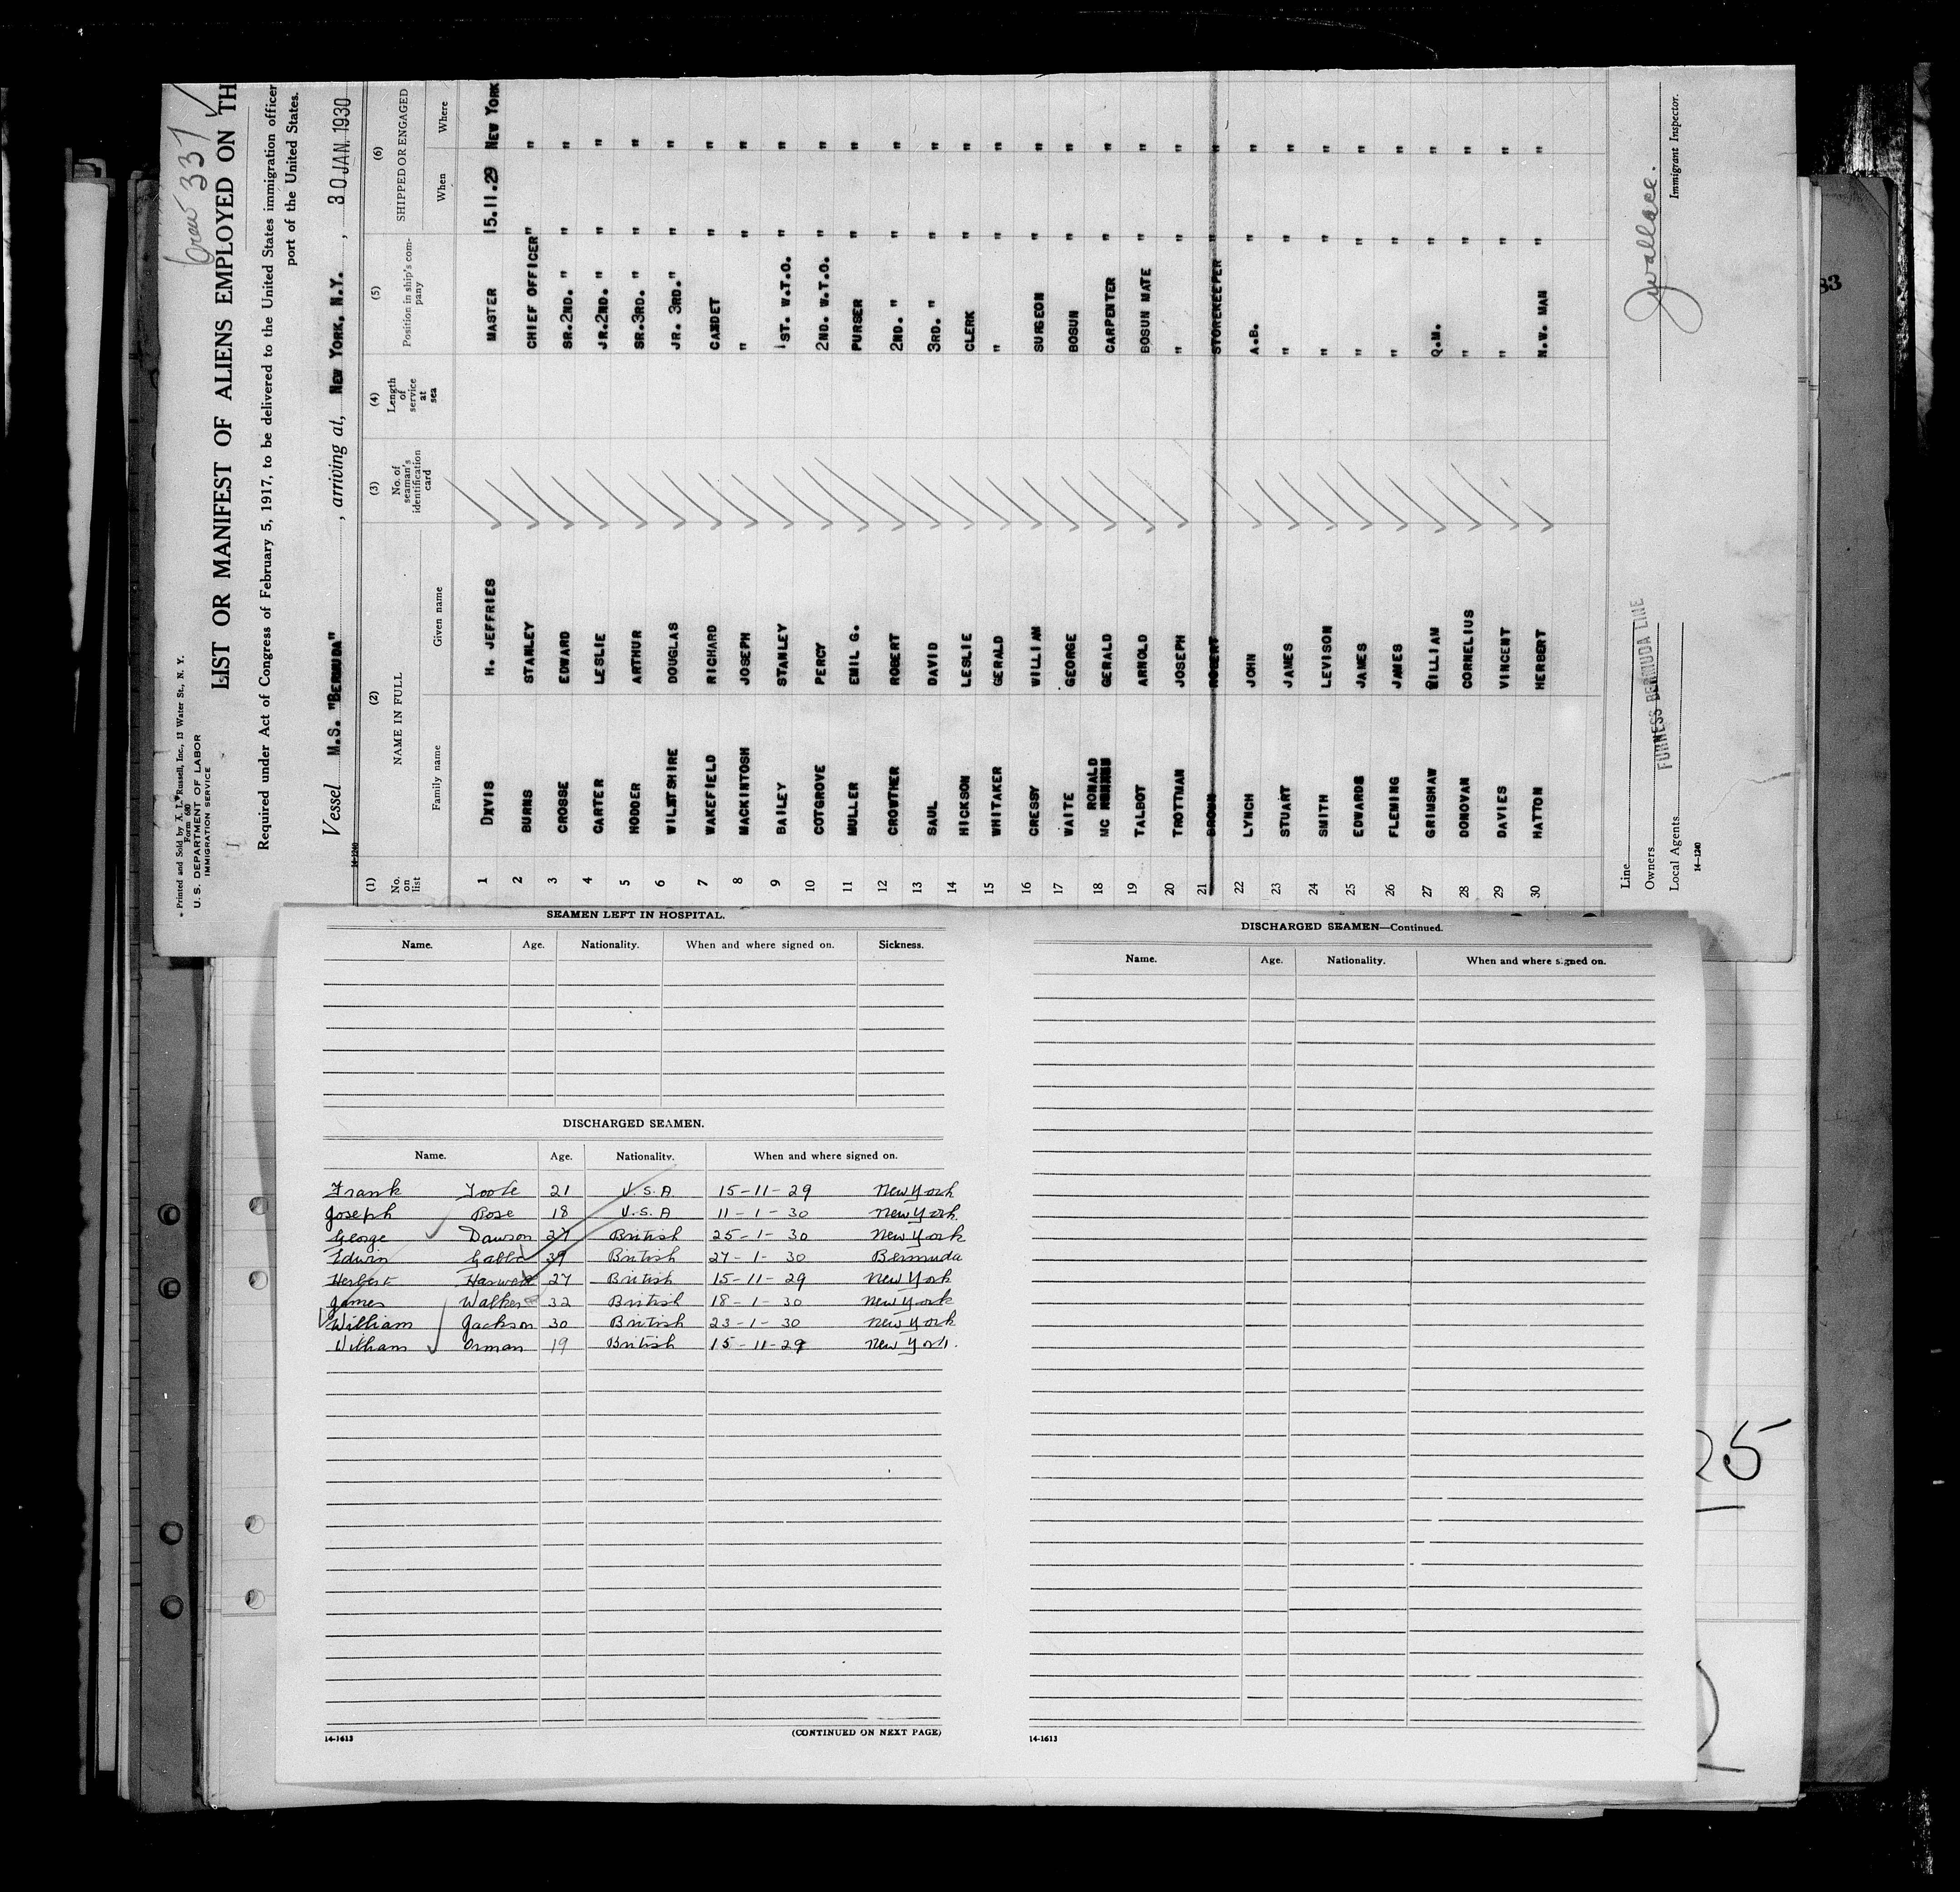 * Printed and Sold by A. L. Russell, Inc., 13 Water St., N. Y.
Form 680
U. S. DEPARTMENT OF LABOR
IMMIGRATION SERVICE
Crew 337
LIST OR MANIFEST OF ALIENS EMPLOYED ON TH
Required under Act of Congress of February 5, 1917, to be delivered to the United States immigration officer
port of the United States.
Vessel M.S. "BERMUDA", arriving at, NEW YORK, N.Y., 30 JAN. 1930
14-1240
(1) (2) (3) (4) (5) (6)
No. on list NAME IN FULL No. of seaman's identification card Length of service at sea Position in ship's company SHIPPED OR ENGAGED
Family name Given name When Where
1 DAVIS H. JEFFRIES MASTER 15.11.29 NEW YORK
2 BURNS STANLEY CHIEF OFFICER " "
3 CROSSE EDWARD SR.2ND. " " "
4 CARTER LESLIE JR.2ND. " " "
5 HODDER ARTHUR SR.3RD. " " "
6 WILTSHIRE DOUGLAS JR. 3RD." " "
7 WAKEFIELD RICHARD CADET " "
8 MACKINTOSH JOSEPH " " "
9 BAILEY STANLEY 1ST. W.T.O. " "
10 COTGROVE PERCY 2ND. W.T.O. " "
11 MULLER EMIL G. PURSER " "
12 CROWTHER ROBERT 2ND. " " "
13 SAUL DAVID 3RD. " " "
14 HICKSON LESLIE CLERK " "
15 WHITAKER GERALD " " "
16 CRESSY WILLIAM SURGEON " "
17 WAITE GEORGE BOSUN " "
18 MC RONALD GERALD CARPENTER " "
19 TALBOT ARNOLD BOSUN MATE " "
20 TROTTMAN JOSEPH " " "
21 BROWN ROBERT STOREKEEPER " "
22 LYNCH JOHN A.B. " "
23 STUART JAMES " " "
24 SMITH LEVISON " " "
25 EDWARDS JAMES " " "
26 FLEMING JAMES " " "
27 GRIMSHAW WILLIAM Q.M. " "
28 DONOVAN CORNELIUS " " "
29 DAVIES VINCENT " " "
30 HATTON HERBERT N.W. MAN " "
Line
Owners FURNESS BERMUDA LINE
Local Agents
14-1240
J Wallace.
Immigrant Inspector.
83
SEAMEN LEFT IN HOSPITAL.
Name. Age. Nationality. When and where signed on. Sickness.
DISCHARGED SEAMEN.
Name. Age. Nationality. When and where signed on.
Frank Toole 21 U.S.A. 15-11-29 New York
Joseph Rose 18 U.S.A 11-1-30 New York.
George Dawson 27 British 25-1-30 New York
Edwin 39 British 27-1-30 Bermuda
Herbert 27 British 15-11-29 New York
James Walker 32 British 18-1-30 New York
William Jackson 30 British 23-1-30 New York
William Orman 19 British 15-11-29 New York.
14-1613
(CONTINUED ON NEXT PAGE)
DISCHARGED SEAMEN—Continued.
Name. Age. Nationality. When and where signed on.
14-1613
25